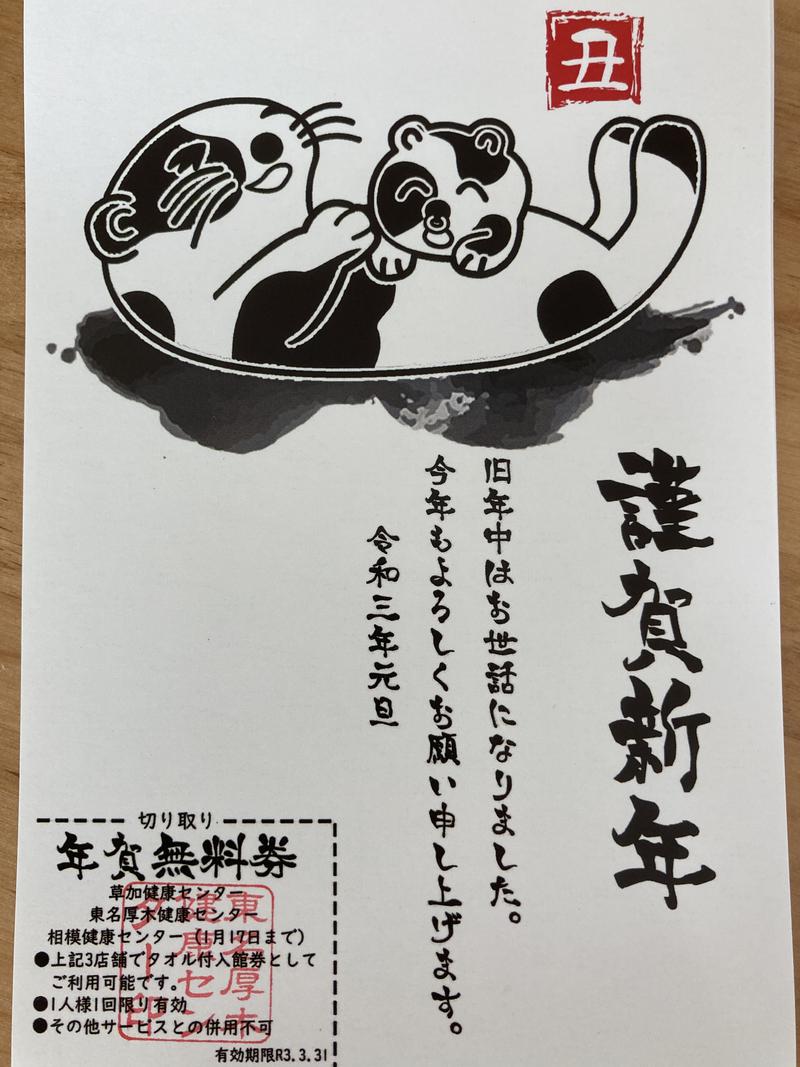 丑
謹賀新年
旧年中はお世話になりました。
今年もよろしくお願い申し上げます。
令和三年元旦
切り取り
年賀無料券
草加健康センター
東名厚木健康センター
相模健康センター（1月17日まで）
●上記3店舗でタオル付入館券として
ご利用可能です。
●1人様1回限り有効
●その他サービスとの併用不可
有効期限R3.3.31
東名厚木
健康セン
ター印